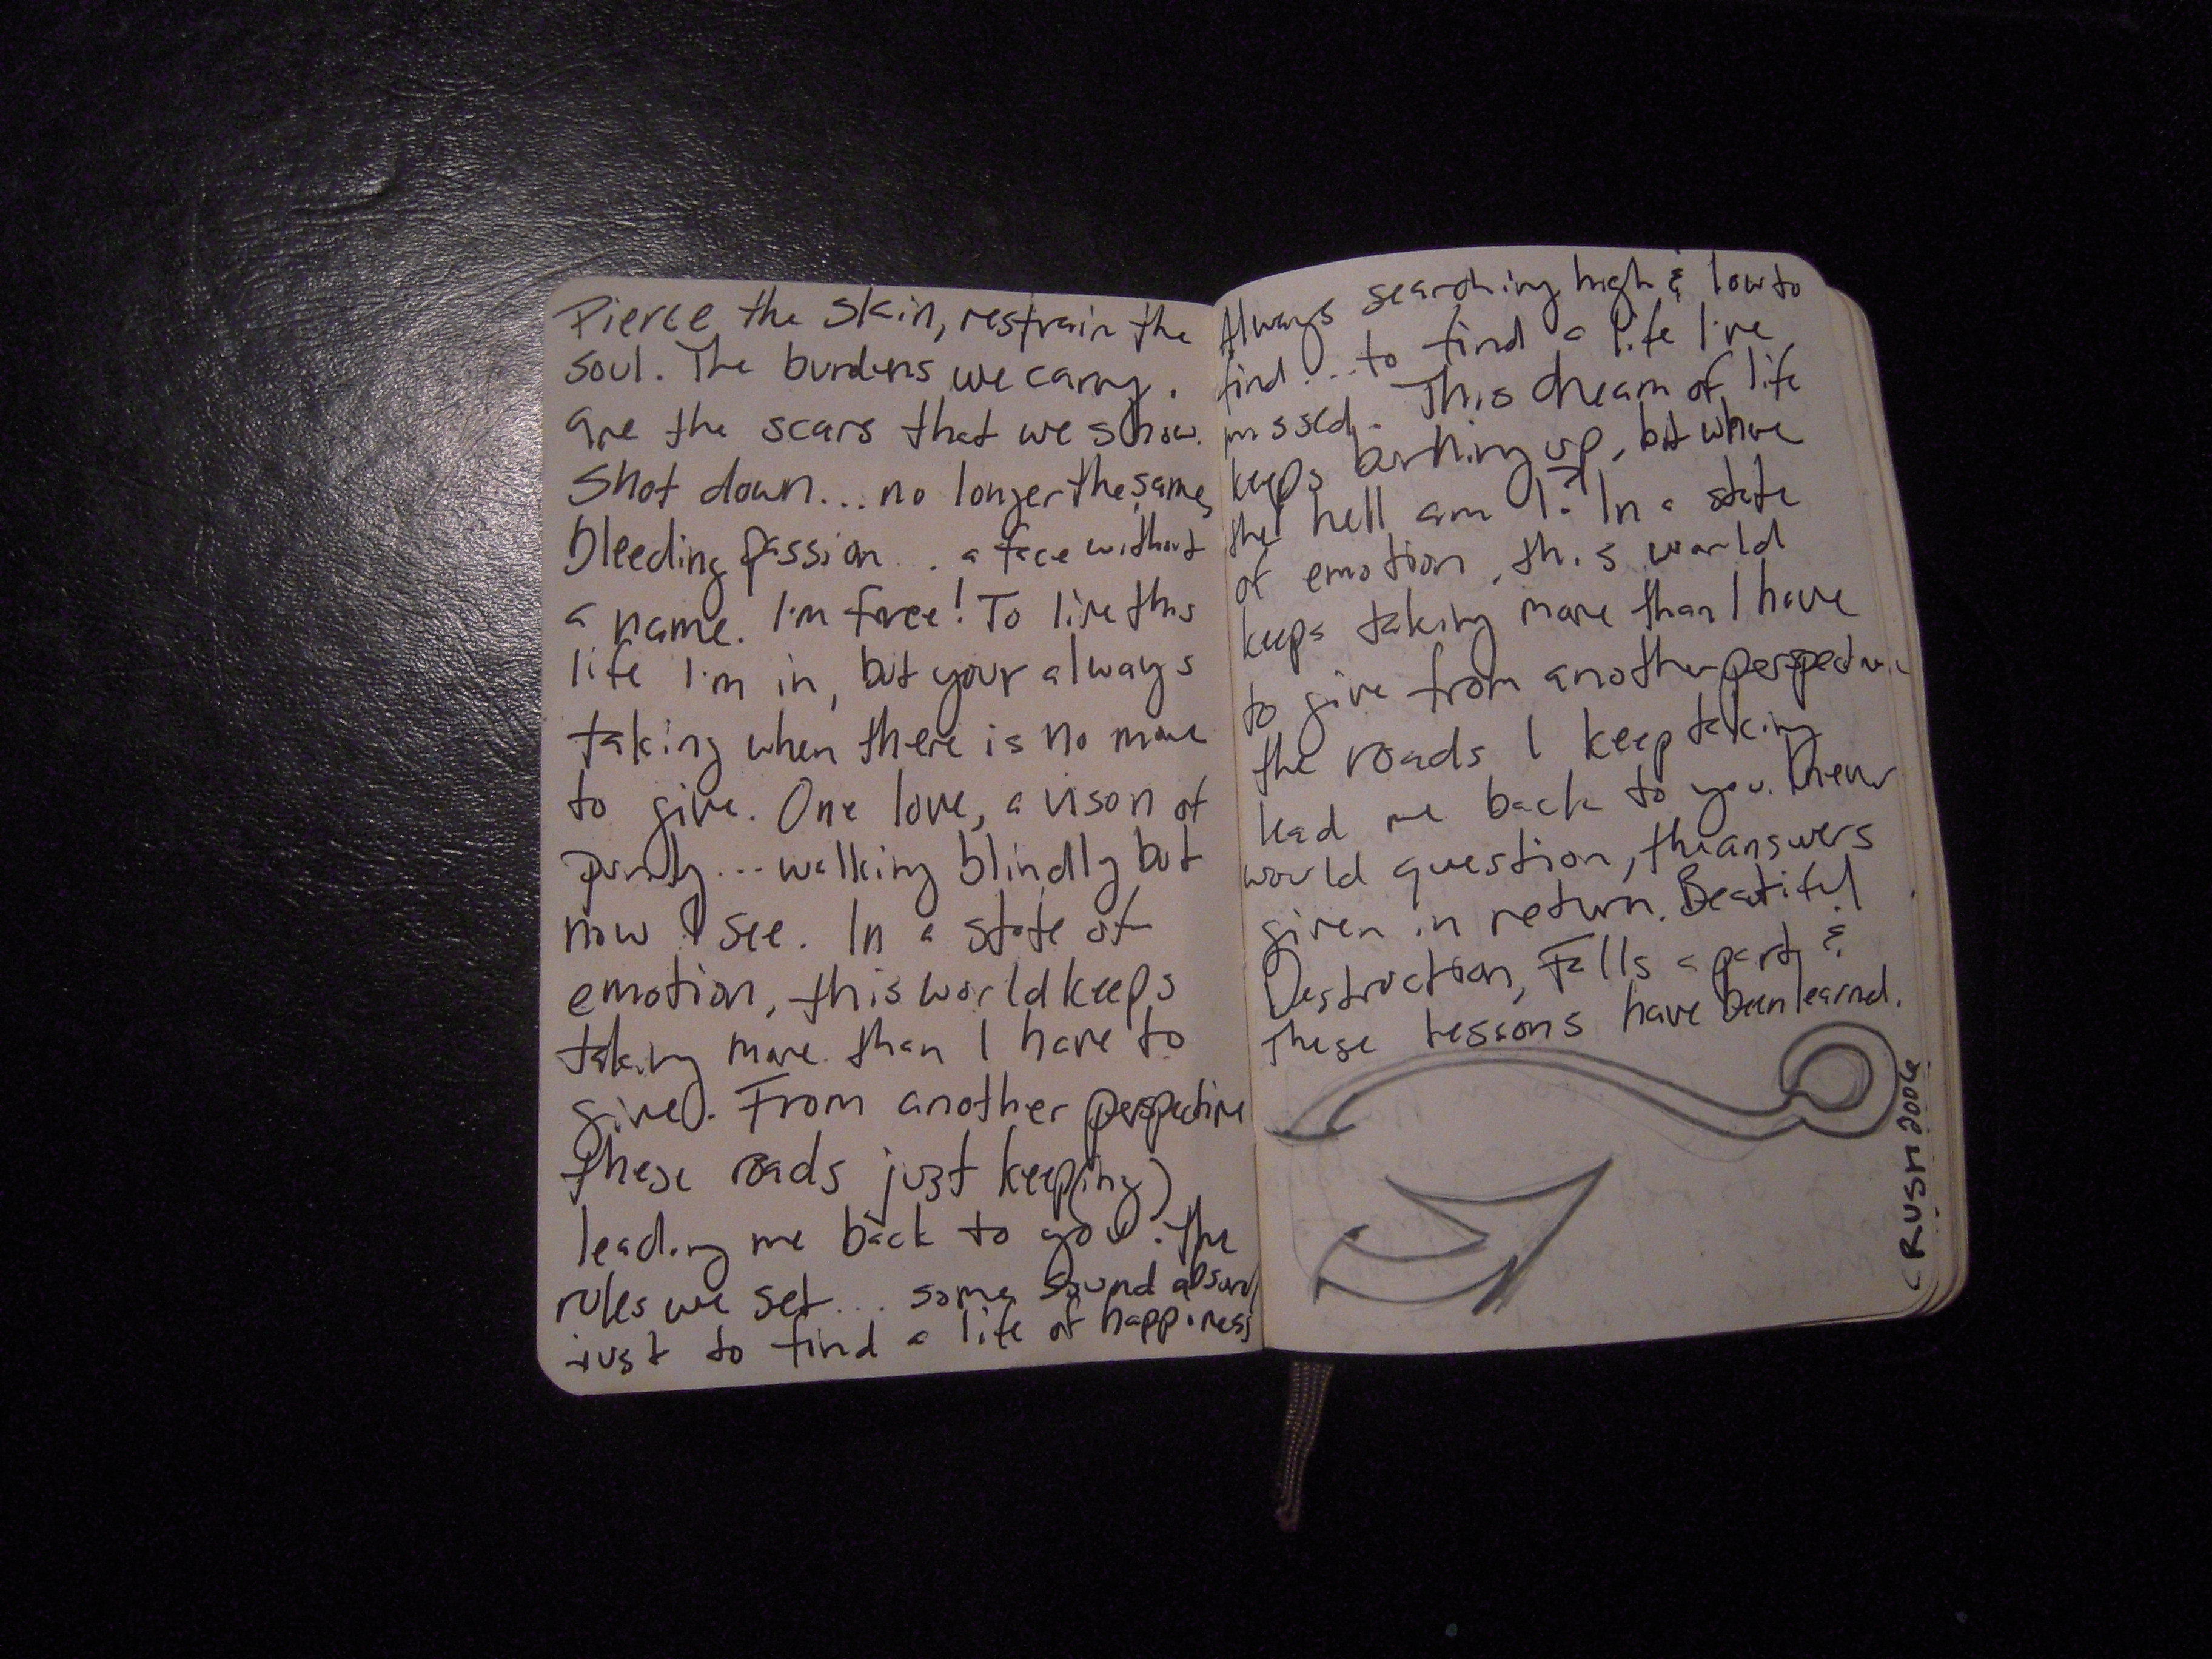 Pierce the skin, restrain the
soul. The burdens we carry.
are the scars that we show.
Shot down... no longer the same,
bleeding passion... a face without
a name. I'm free! To live this
life I'm in, but your always
taking when there is no more
to give. One love, a vison of
purity... walking blindly but
now I see. In a state of
emotion, this world keeps
taking more than I have to
give. From another perspective
these roads just keep(ing)
leading me back to you. The
rules we set... some sound absurd
just to find a life of happiness
Always searching high & low to
find.... to find a life I've
missed. This dream of life
keeps burning up, but where
the hell am I? In a state
of emotion, this world
keeps taking more than I have
to give from another perspective
the roads I keep taking
lead me back to you. I never
would question, the answers
given in return. Beautiful
Destruction, Falls apart &
these lessons have been learned.
(RUSH 2006